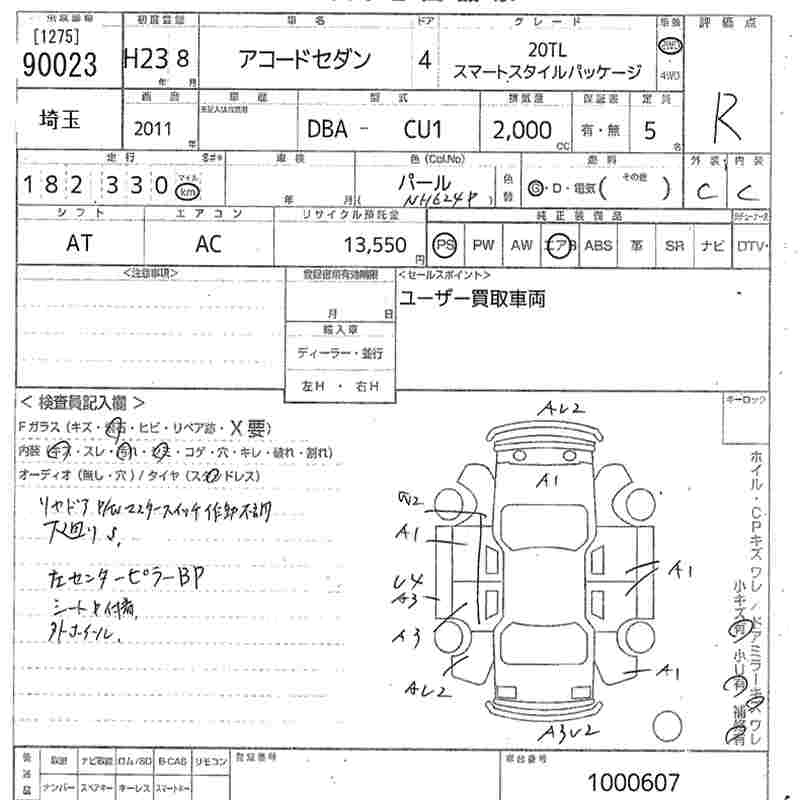 初度登録 車名 ドア グレード 車歴 評価点
[1275]
90023 H23 8 アコードセダン 4 20TL
スマートスタイルパッケージ 2WD 4WD
年 月
R
車歴 型式 排気量 保証書 定員
埼玉 2011 年 DBA - CU1 2,000 CC 有・無 5 名
走行 車検 色(Col.No) 燃料 外装 内装
182330 マイル km 年 月 パール 色替 G・D・電気( その他 ) C C
(NH624P)
シフト エアコン リサイクル預託金 純正装備品
AT AC 13,550 円 PS PW AW エアB ABS 革 SR ナビ DTV
<注意事項> <セールスポイント>
ユーザー買取車両
月 日
輸入車
ディーラー・並行
左H・右H
キーロック
<検査員記入欄>
Fガラス(キズ・飛石・ヒビ・リペア跡・X要)
内装(キズ・スレ・汚れ・コゲ・穴・キレ・破れ・割れ)
オーディオ(無し・穴)/タイヤ(スタッドレス)
リヤドア P/Wマスタースイッチ作動不良
下廻りS,
左センターピラーBP
シート 付着
外ホイール,
AU2
A1
A1
U4
A3
A3
AU2
A1
A1
A3U2
ホイル・CPキズワレ/ドアミラーキズワレ
小キズ有 小U有 補修有
ナビ取説 ロム/SD B-CAS リモコン 登録番号
ナンバー スペアキー キーレス スマートキー
1000607